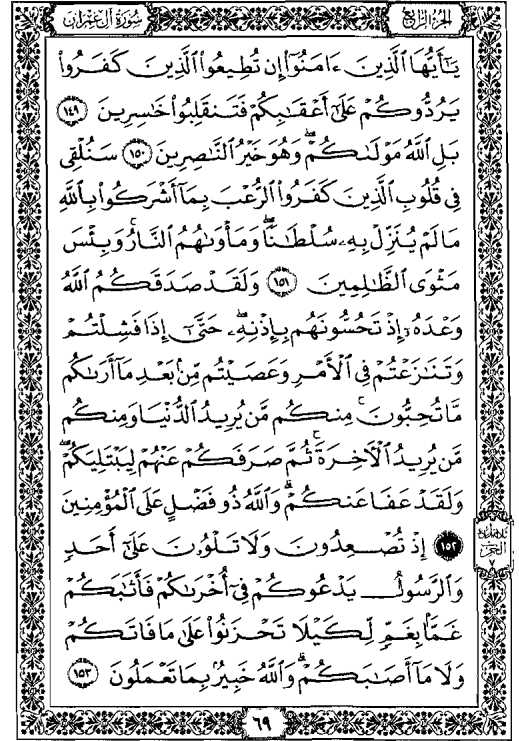 سُورَةُ آلِ عِمْرَانَ
الجُزْءُ الرَّابِعُ
يَٰٓأَيُّهَا ٱلَّذِينَ ءَامَنُوٓا۟ إِن تُطِيعُوا۟ ٱلَّذِينَ كَفَرُوا۟
يَرُدُّوكُمْ عَلَىٰٓ أَعْقَٰبِكُمْ فَتَنقَلِبُوا۟ خَٰسِرِينَ ١٤٩
بَلِ ٱللَّهُ مَوْلَىٰكُمْ ۖ وَهُوَ خَيْرُ ٱلنَّٰصِرِينَ ١٥٠ سَنُلْقِى
فِى قُلُوبِ ٱلَّذِينَ كَفَرُوا۟ ٱلرُّعْبَ بِمَآ أَشْرَكُوا۟ بِٱللَّهِ
مَا لَمْ يُنَزِّلْ بِهِۦ سُلْطَٰنًا ۖ وَمَأْوَىٰهُمُ ٱلنَّارُ ۚ وَبِئْسَ
مَثْوَى ٱلظَّٰلِمِينَ ١٥١ وَلَقَدْ صَدَقَكُمُ ٱللَّهُ
وَعْدَهُۥٓ إِذْ تَحُسُّونَهُم بِإِذْنِهِۦ ۖ حَتَّىٰٓ إِذَا فَشِلْتُمْ
وَتَنَٰزَعْتُمْ فِى ٱلْأَمْرِ وَعَصَيْتُم مِّنۢ بَعْدِ مَآ أَرَىٰكُم
مَّا تُحِبُّونَ ۚ مِنكُم مَّن يُرِيدُ ٱلدُّنْيَا وَمِنكُم
مَّن يُرِيدُ ٱلْءَاخِرَةَ ۚ ثُمَّ صَرَفَكُمْ عَنْهُمْ لِيَبْتَلِيَكُمْ ۖ
وَلَقَدْ عَفَا عَنكُمْ ۗ وَٱللَّهُ ذُو فَضْلٍ عَلَى ٱلْمُؤْمِنِينَ
١٥٢ إِذْ تُصْعِدُونَ وَلَا تَلْوُۥنَ عَلَىٰٓ أَحَدٍ
وَٱلرَّسُولُ يَدْعُوكُمْ فِىٓ أُخْرَىٰكُمْ فَأَثَٰبَكُمْ
غَمًّۢا بِغَمٍّ لِّكَيْلَا تَحْزَنُوا۟ عَلَىٰ مَا فَاتَكُمْ
وَلَا مَآ أَصَٰبَكُمْ ۗ وَٱللَّهُ خَبِيرٌۢ بِمَا تَعْمَلُونَ ١٥٣
الحزب
٧
٦٩